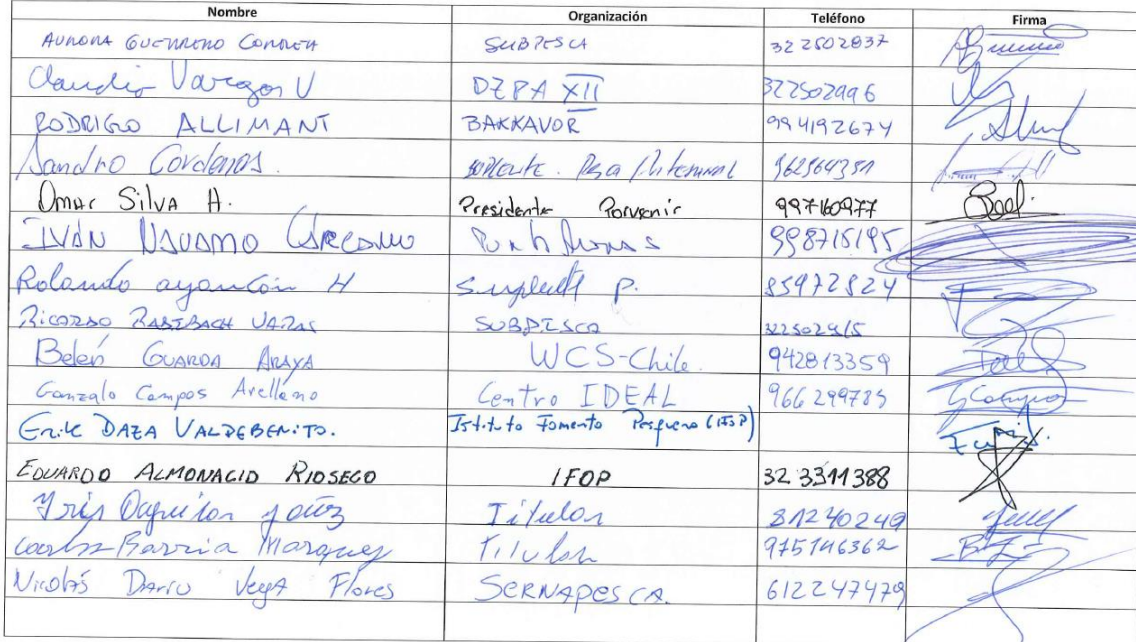 Nombre Organización Teléfono Firma
AURORA GUERRERO CORREA SUBPESCA 322502837
Claudio Vargas V DZPA XII 322502996
RODRIGO ALLIMANT BAKKAVOR 994192674
Sandro Cardenas. Pesca Artesanal
Omar Silva H. Presidente Porvenir 997160977
IVÁN 998715195
Rolando ayancán H Suplente P. 85972824
RICARDO VARAS SUBPESCA
Belén GUARDA ARAYA WCS-Chile. 942813359
Gonzalo Campos Arellano Centro IDEAL 966299785
Erik DAZA VALDEBENITO. Istituto Fomento Pesquero (IFOP)
EDUARDO ALMONACID RIOSECO IFOP 32 3311388
Titular 81240249
Carlos Barria Marquez Titular 975146362
Nicolás Dario Vega Flores SERNAPESCA. 612247479